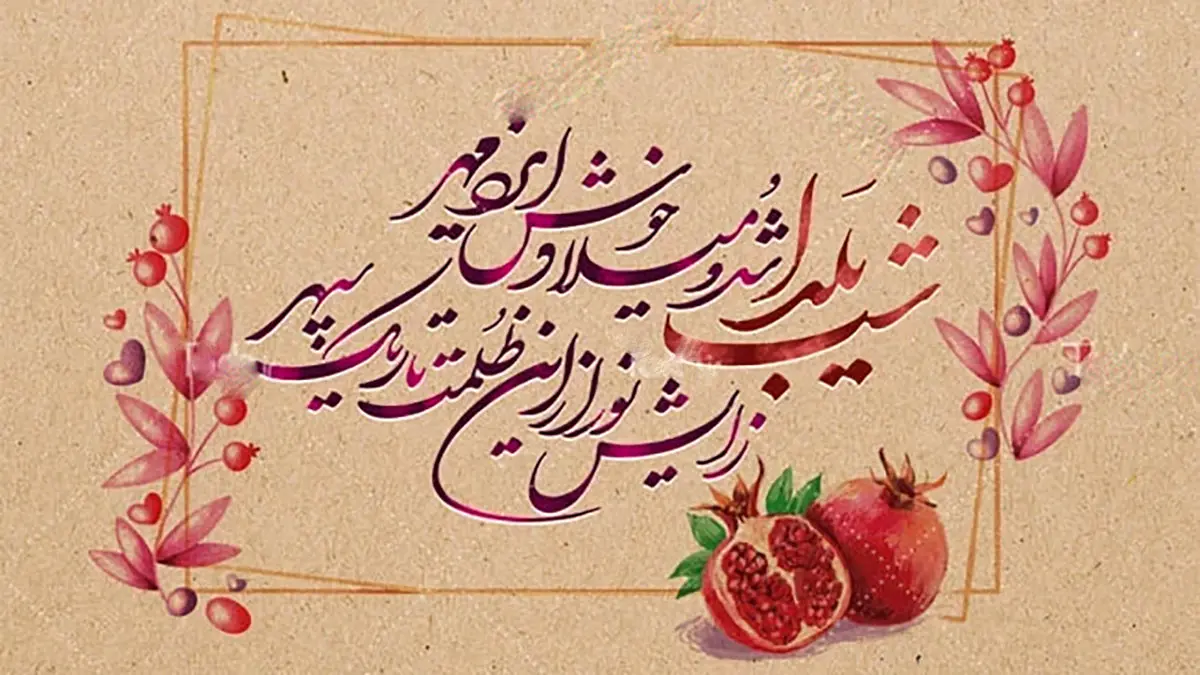 شب یلدا شد و میلاد خوش ایزد مهر
زایش نور از این ظُلمت تاریک سپهر